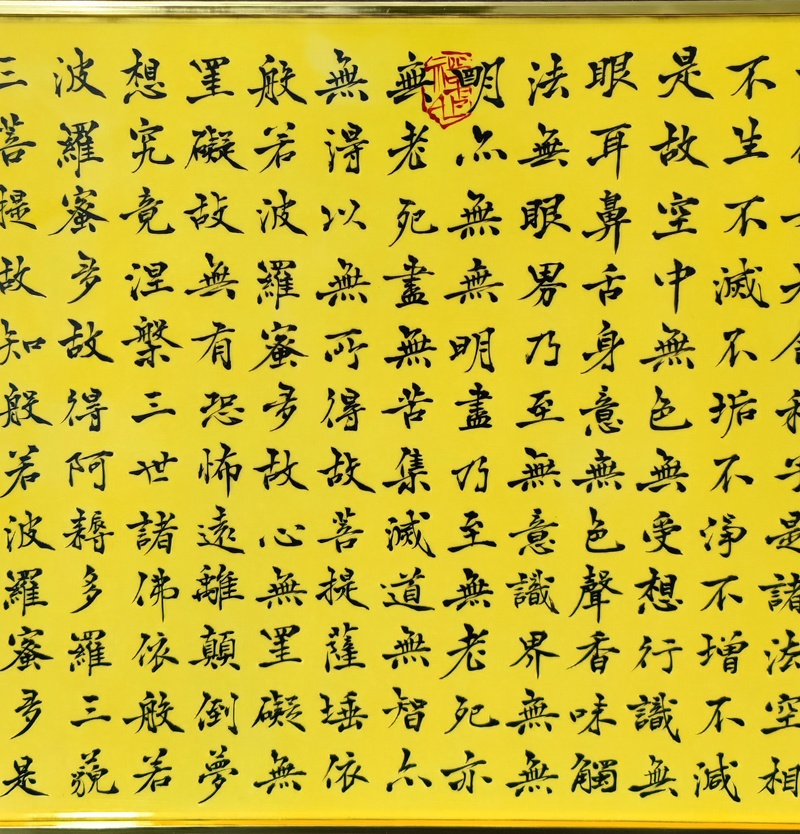 舍利子是諸法空相
不生不滅不垢不淨不增不減
是故空中無色無受想行識無
眼耳鼻舌身意無色聲香味觸
法無眼界乃至無意識界無無
明亦無無明盡乃至無老死亦
無老死盡無苦集滅道無智亦
無得以無所得故菩提薩埵依
般若波羅蜜多故心無罣礙無
罣礙故無有恐怖遠離顛倒夢
想究竟涅槃三世諸佛依般若
波羅蜜多故得阿耨多羅三藐
三菩提故知般若波羅蜜多是